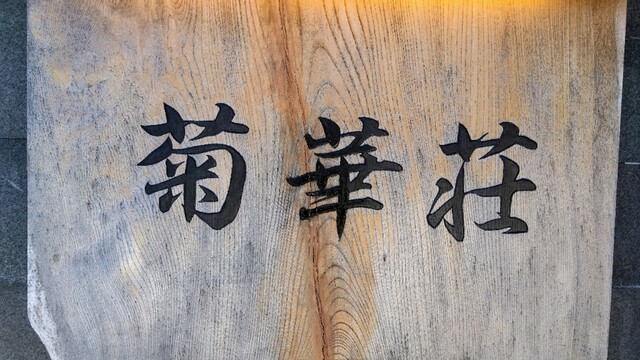 菊華荘